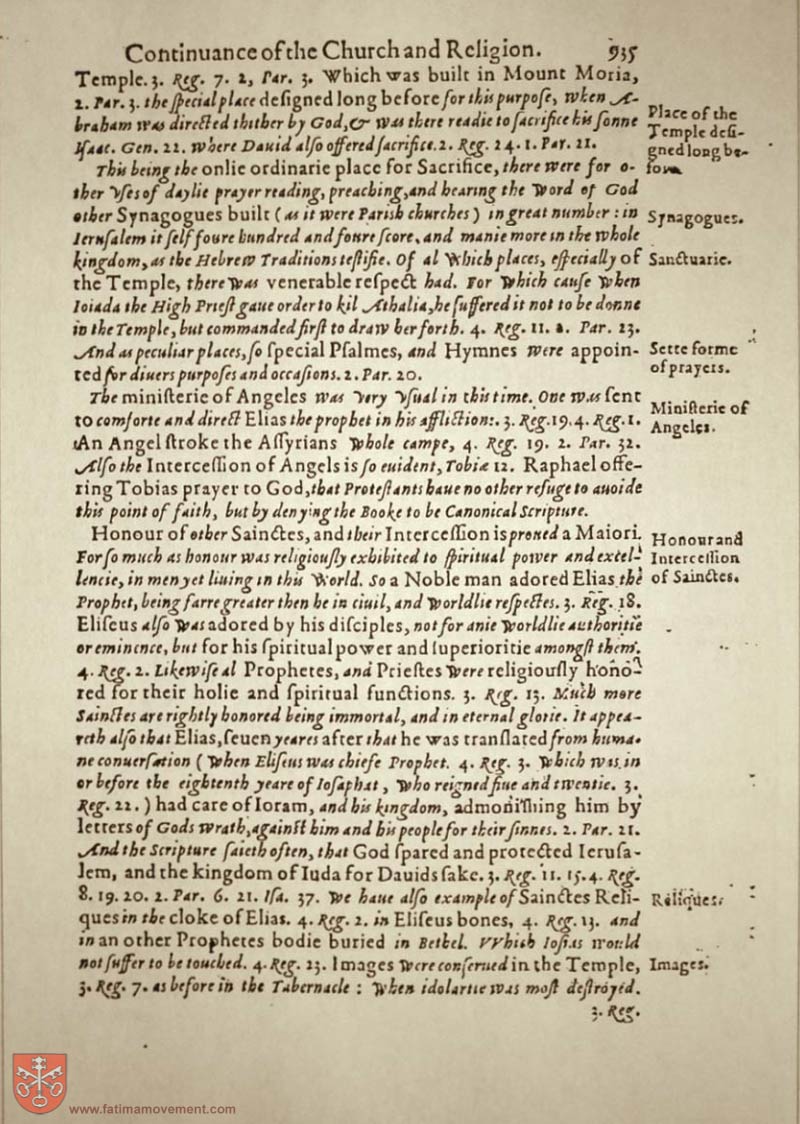 Continuance of the Church and Religion. 935
Temple. 3. Reg. 7. 2, Par. 3. Which was built in Mount Moria,
2. Par. 3. the ſpecial place deſigned long before for this purpoſe, when A-
braham was directed thither by God, & was there readie to ſacrifice his ſonne
Iſaac. Gen. 22. where Dauid alſo offered ſacrifice. 2. Reg. 24. 1. Par. 21.
Place of the
Temple deſi-
gned long be-
fore.
This being the onlie ordinarie place for Sacrifice, there were for o-
ther vſes of daylie prayer reading, preaching, and hearing the word of God
other Synagogues built (as it were Pariſh churches) in great number: in
Synagogues.
Ieruſalem it ſelf foure hundred and foure ſcore, and manie more in the whole
kingdom, as the Hebrew Traditions teſtifie. Of al which places, eſpecially of
Sanctuarie.
the Temple, there was venerable reſpect had. For which cauſe when
Ioiada the High Prieſt gaue order to kil Athalia, he ſuffered it not to be donne
in the Temple, but commanded firſt to draw her forth. 4. Reg. 11. 2. Par. 23.
And as peculiar places, ſo ſpecial Pſalmes, and Hymnes were appoin-
ted for diuers purpoſes and occaſions. 2. Par. 20.
Sette forme
of prayers.
The miniſterie of Angeles was very vſual in this time. One was ſent
to comforte and direct Elias the prophet in his affliction:. 3. Reg. 19. 4. Reg. 1.
Miniſterie of
Angeles.
An Angel ſtroke the Aſſyrians whole campe, 4. Reg. 19. 2. Par. 32.
Alſo the Interceſſion of Angels is ſo euident, Tobiæ 12. Raphael offe-
ring Tobias prayer to God, that Proteſtants haue no other refuge to auoide
this point of faith, but by denying the Booke to be Canonical Scripture.
Honour of other Sainctes, and their Interceſſion is proued a Maiori.
For ſo much as honour was religiouſly exhibited to ſpiritual power and excel-
lencie, in men yet liuing in this world. So a Noble man adored Elias the
Honour and
Interceſſion
of Sainctes.
Prophet, being farre greater then he in ciuil, and worldlie reſpectes. 3. Reg. 18.
Eliſeus alſo was adored by his diſciples, not for anie worldlie authoritie
or eminence, but for his ſpiritual power and ſuperioritie amongſt them.
4. Reg. 2. Likewiſe al Prophetes, and Prieſtes were religiouſly hono-
red for their holie and ſpiritual functions. 3. Reg. 13. Much more
Sainctes are rightly honored being immortal, and in eternal glorie. It appea-
reth alſo that Elias, ſeuen yeares after that he was tranſlated from huma-
ne conuerſation (when Eliſeus was chiefe Prophet. 4. Reg. 3. which was in
or before the eightenth yeare of Ioſaphat, who reigned fiue and twentie. 3.
Reg. 22.) had care of Ioram, and his kingdom, admoniſhing him by
letters of Gods wrath, againſt him and his people for their ſinnes. 2. Par. 21.
And the Scripture ſaieth often, that God ſpared and protected Ieruſa-
lem, and the kingdom of Iuda for Dauids ſake. 3. Reg. 11. 15. 4. Reg.
8. 19. 20. 2. Par. 6. 21. Iſa. 37. We haue alſo example of Sainctes Reli-
ques in the cloke of Elias. 4. Reg. 2. in Eliſeus bones, 4. Reg. 13. and
Reliques.
in an other Prophetes bodie buried in Bethel. VVhich Ioſias would
not ſuffer to be touched. 4. Reg. 23. Images were conſerued in the Temple,
Images.
3. Reg. 7. as before in the Tabernacle: when idolatrie was moſt deſtroyed.
3. Reg.
www.fatimamovement.com